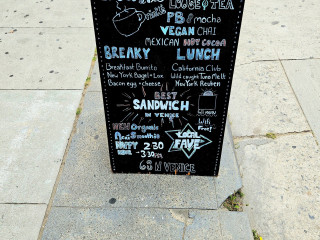 Drinks
TEA
PB & mocha
VEGAN CHAI
MEXICAN HOT COCOA
BREAKY LUNCH
Breakfast Burrito California Club
New York Bagel + Lox Wild caught Tuna Melt
Bacon egg + cheese New York Reuben
BEST
SANDWICH
IN VENICE
NEW Organic
Smoothies
HAPPY 2:30
- 3:30PM
Local
FAVE
Wifi
Free!
VENICE